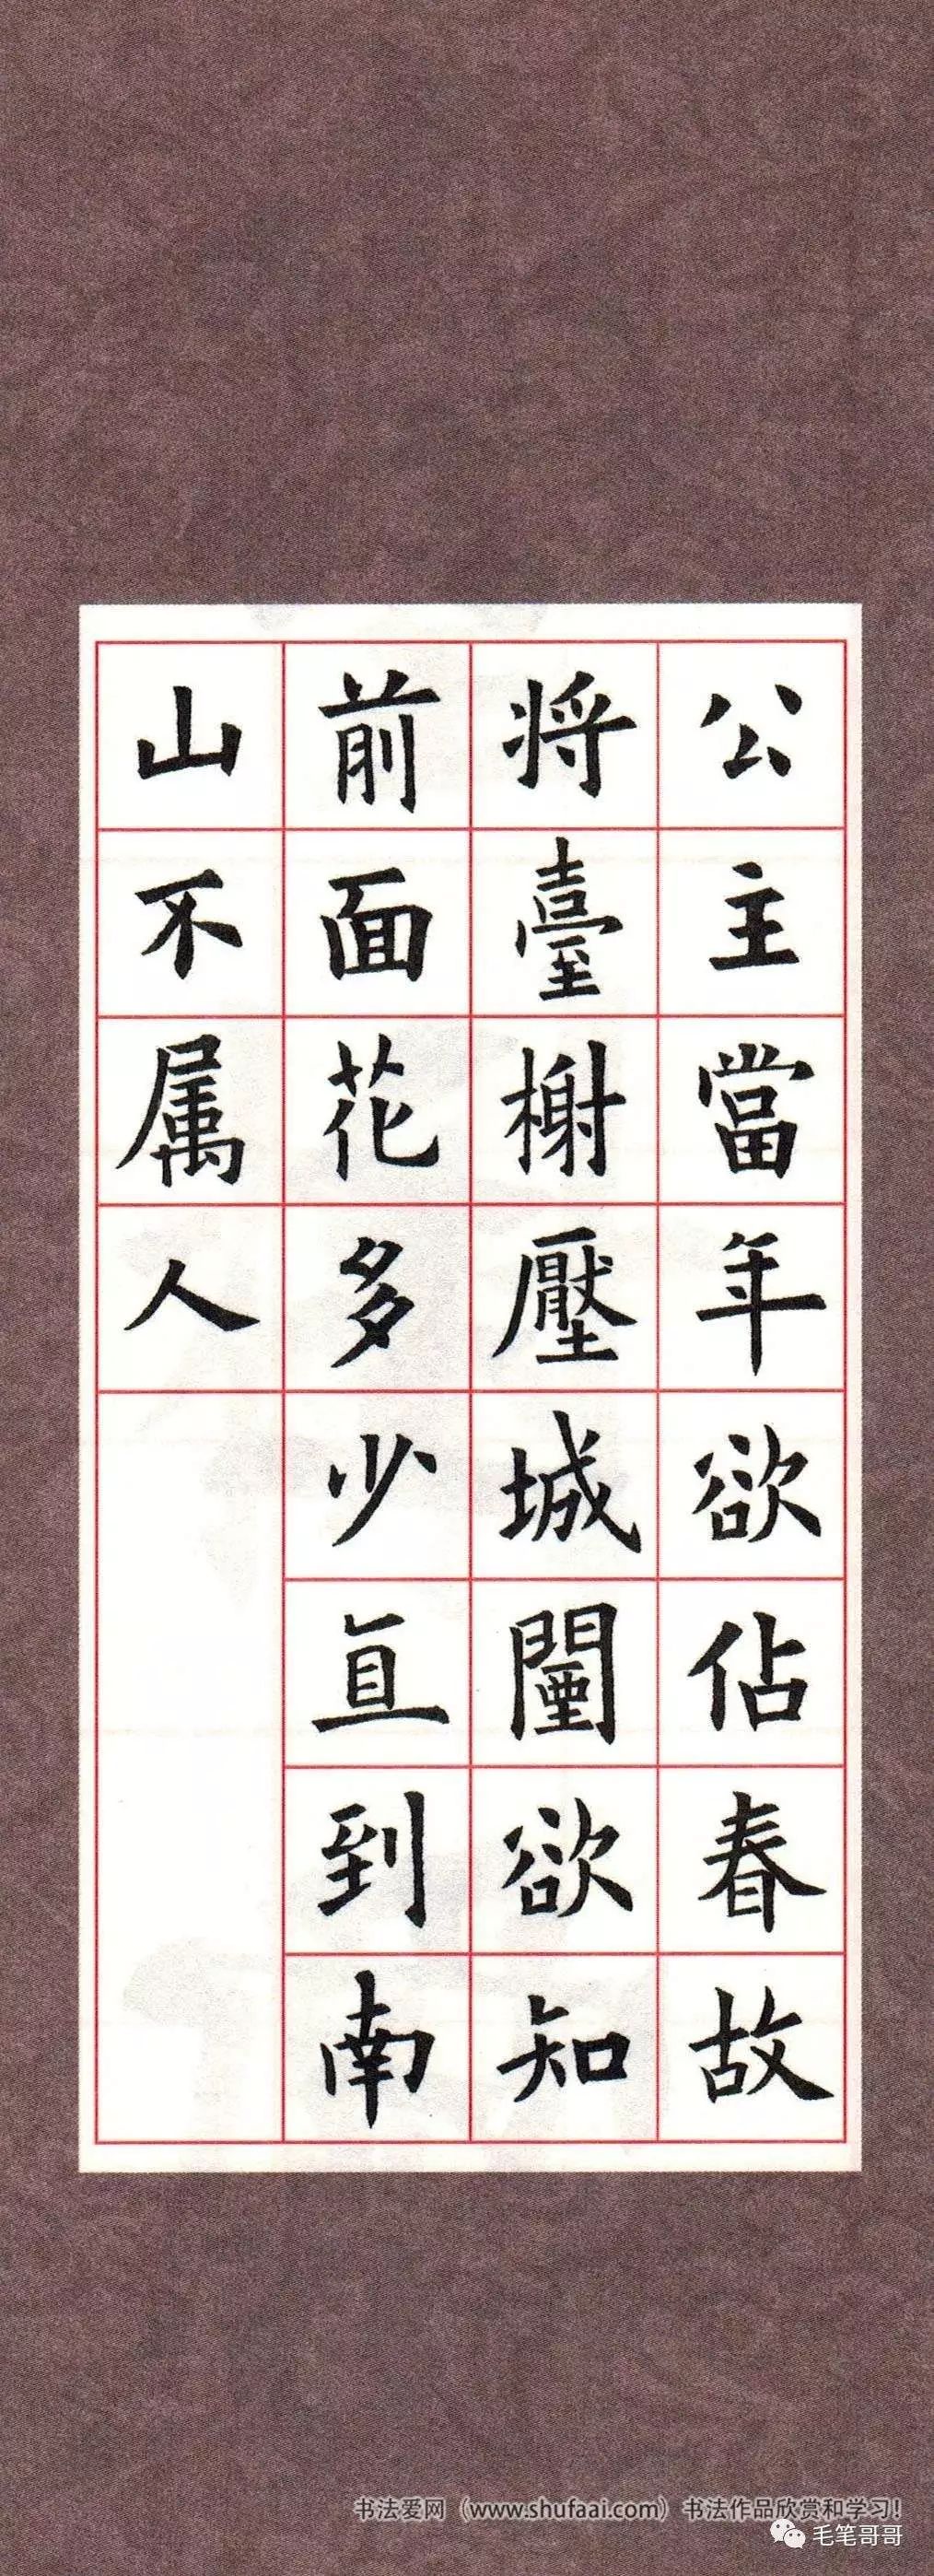 公主當年欲佔春故
将臺榭壓城闉欲知
前面花多少直到南
山不属人
书法爱网（www.shufaai.com）书法作品欣赏和学习！
毛笔哥哥